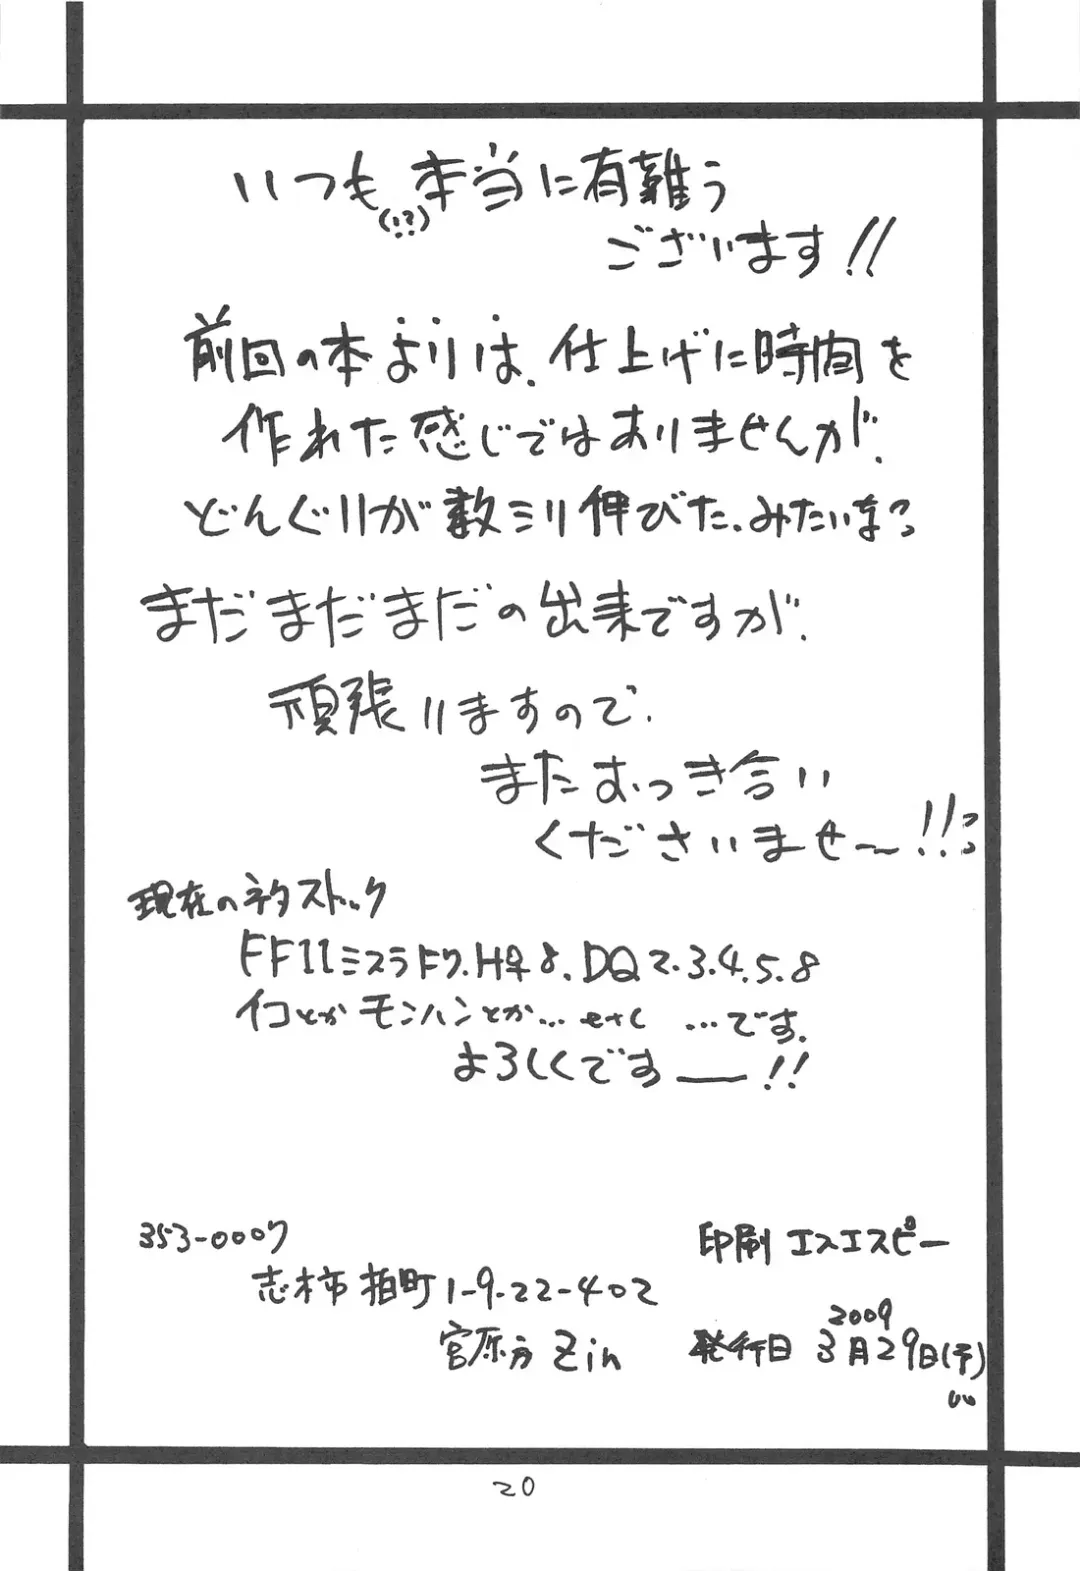 いつも(!?)本当に有難う
ございます!!
前回の本よりは、仕上げに時間を
作れた感じではありませんが、
どんぐりが数ミリ伸びた、みたいな?
まだまだまだの出来ですが、
頑張りますので、
またおつき合い
くださいませ〜!!?
現在のネタストック
FF11ミスラ DQ2.3.4.5.8
イコとかモンハンとか…etc …です。
よろしくです―!!
353-0007
志木市柏町1-9-22-402
宮原方 Zin
印刷 エスエスピー
2009
発行日 3月29日(予)
20